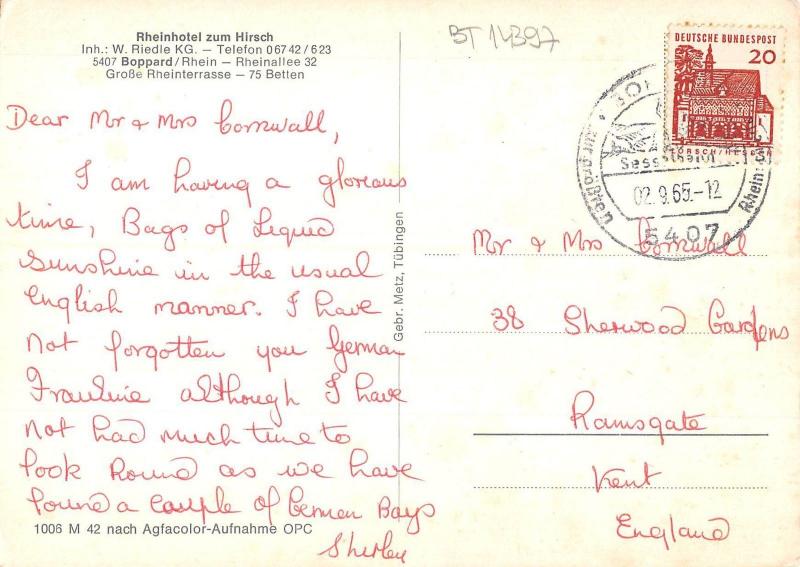 Rheinhotel zum Hirsch
Inh.: W. Riedle KG. – Telefon 06742/623
5407 Boppard/Rhein – Rheinallee 32
Große Rheinterrasse – 75 Betten
BT 14397
DEUTSCHE BUNDESPOST
20
LORSCH/HESSEN
Sesselbahn
02.9.65.-12
5407
Dear Mr & Mrs Cornwall,
I am having a glorious
time, Bags of Liquid
Sunshine in the usual
English manner. I have
not forgotten you German
Frauline although I have
not had much time to
look Round as we have
found a couple of German Boys
Shirley
1006 M 42 nach Agfacolor-Aufnahme OPC
Gebr. Metz, Tübingen
Mr & Mrs Cornwall
38 Sherwood Gardens
Ramsgate
Kent
England